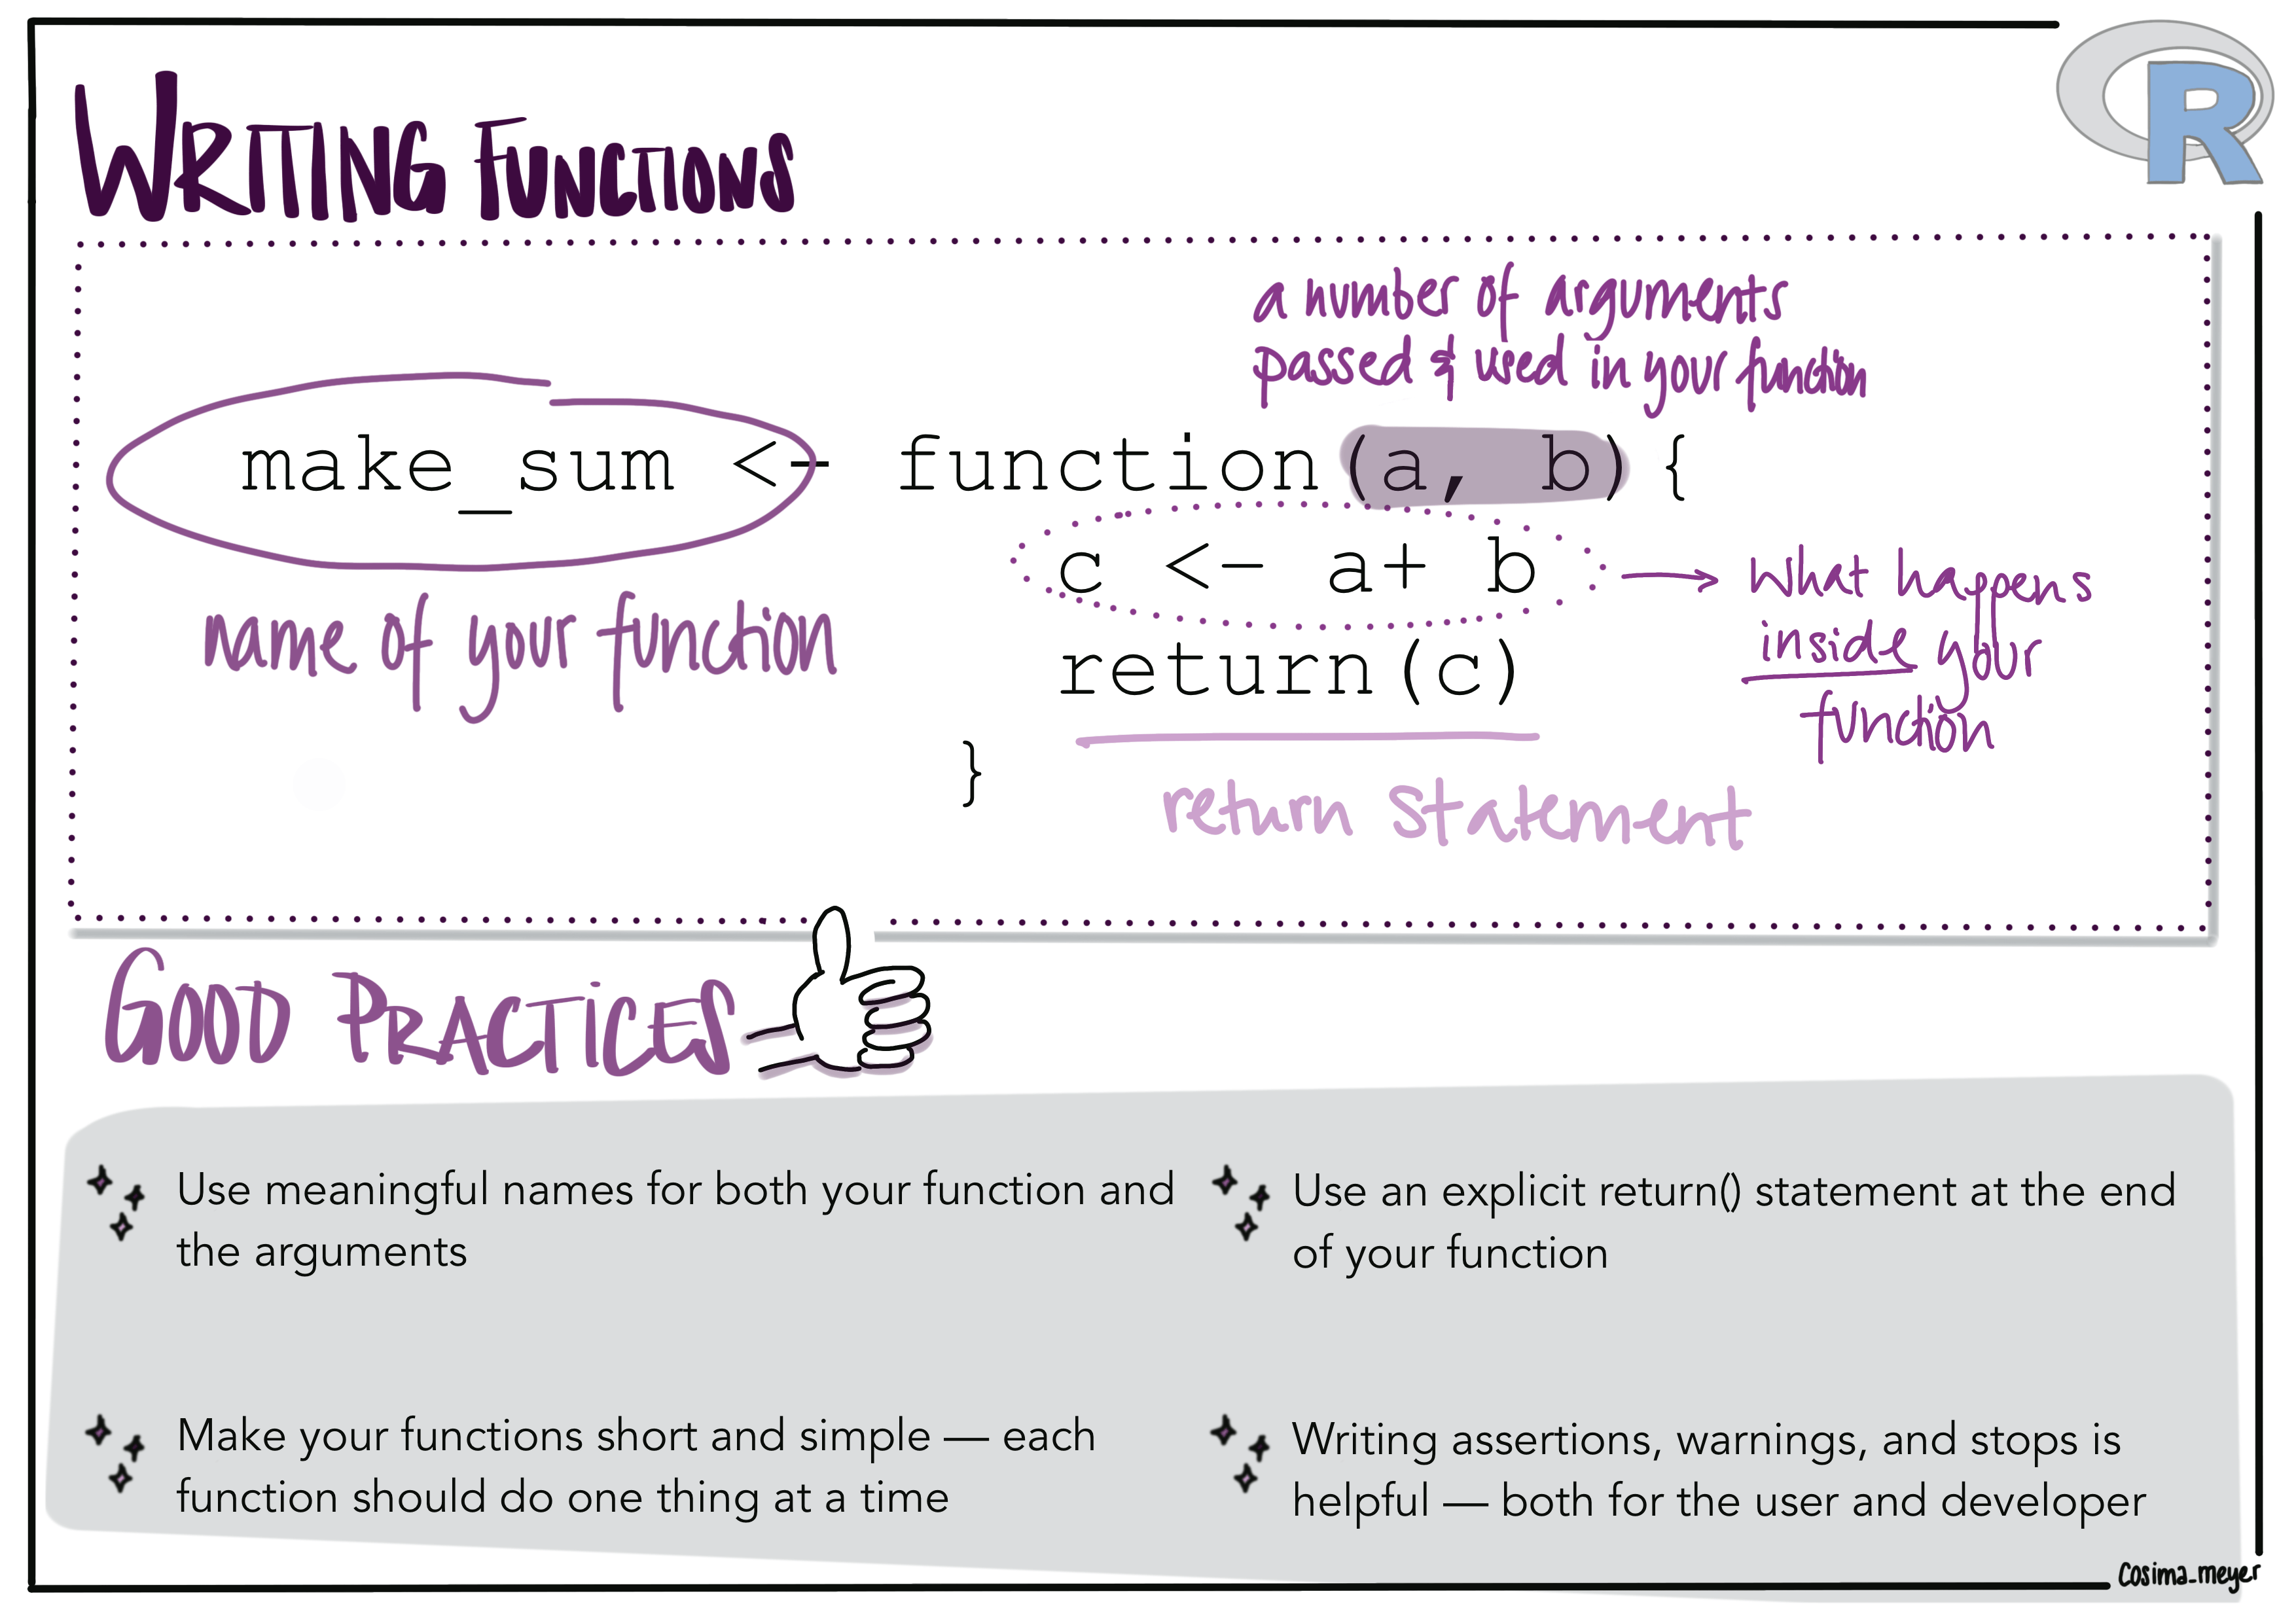 WRITING FUNCTIONS
R
a number of arguments
passed & used in your function
make_sum <- function(a, b){
c <- a+ b
return(c)
}
name of your function
what happens
inside your
function
return statement
GOOD PRACTICES
Use meaningful names for both your function and
the arguments
Use an explicit return() statement at the end
of your function
Make your functions short and simple — each
function should do one thing at a time
Writing assertions, warnings, and stops is
helpful — both for the user and developer
cosima_meyer